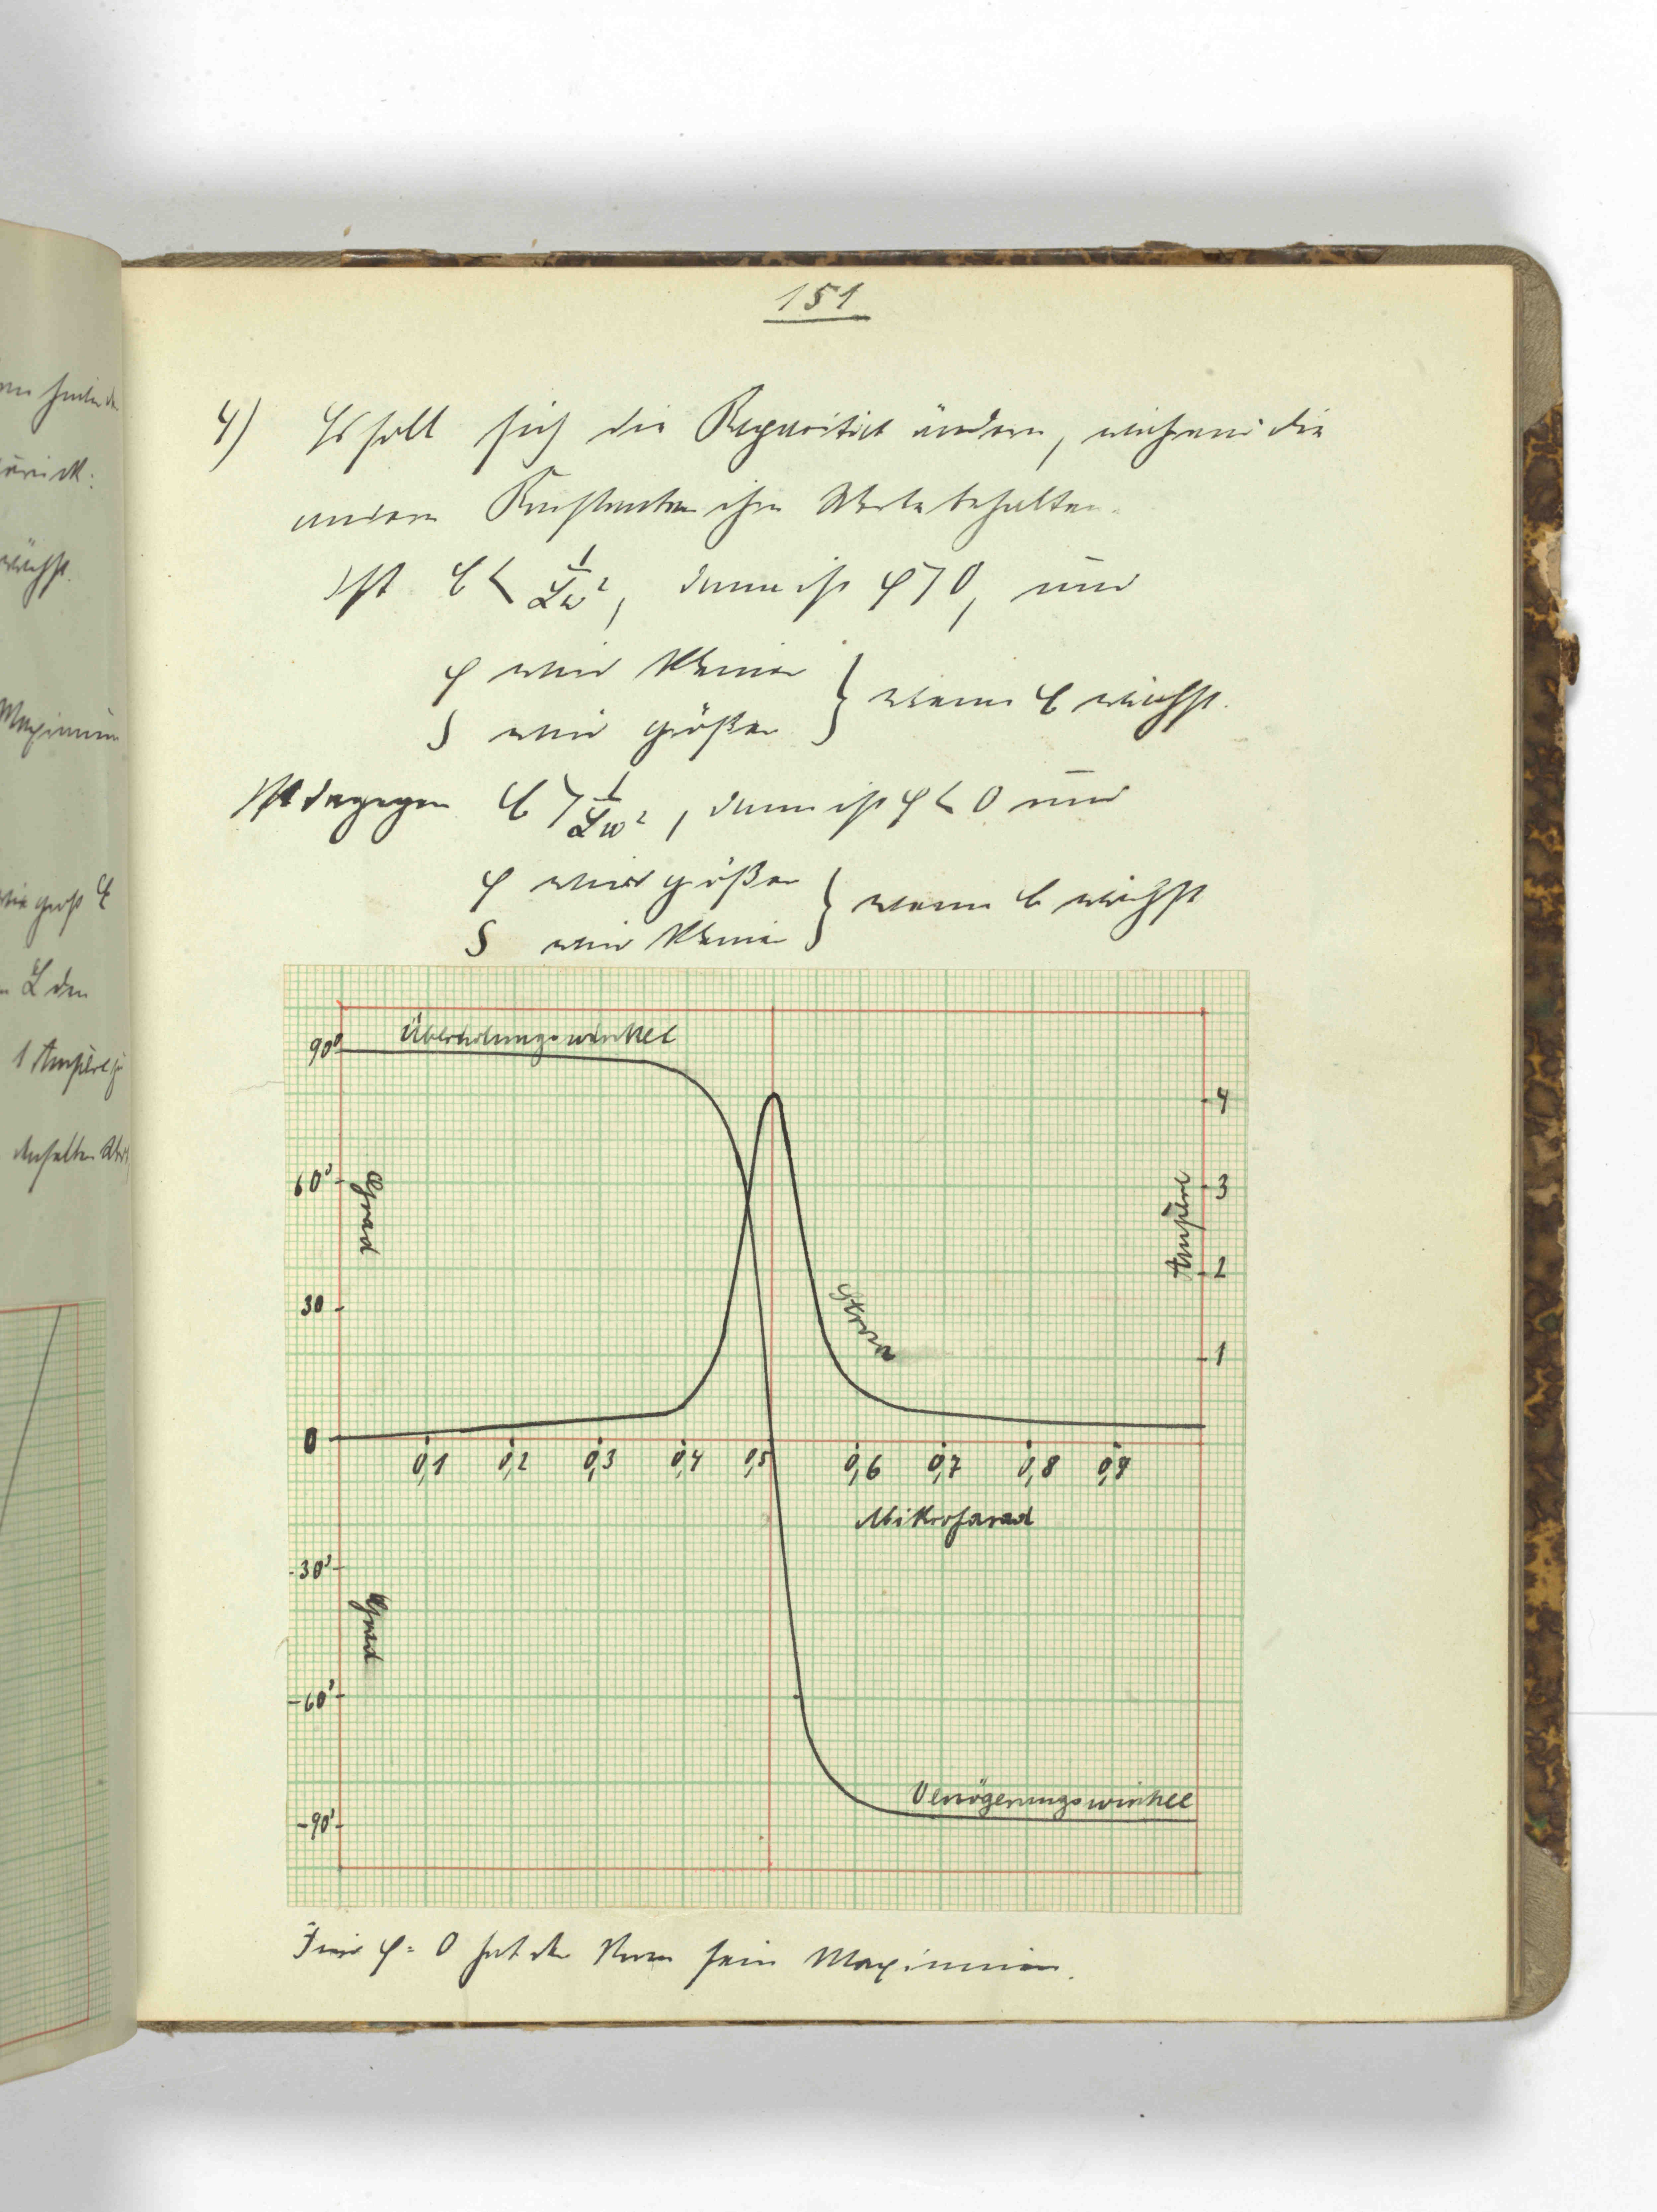 151
4) Es soll sich die Kapacität ändern, während die
andern Konstanten ihre Werte behalten.
Ist C < 1/Lω², dann ist φ > 0, und
φ wird kleiner
J wird größer } wenn C wächst.
Ist dagegen C > 1/Lω², dann ist φ < 0 und
φ wird größer
J wird kleiner } wenn C wächst
Überholungswinkel
90°
4
60°
Grad
3
Ampère
2
30
Strom
1
0
0,1 0,2 0,3 0,4 0,5 0,6 0,7 0,8 0,9
Mikrofarad
-30°
Grad
-60°
Verzögerungswinkel
-90°
Für φ = 0 hat der Strom sein Maximum.
wächst.
Maximum
wie groß C
L den
1 Ampère